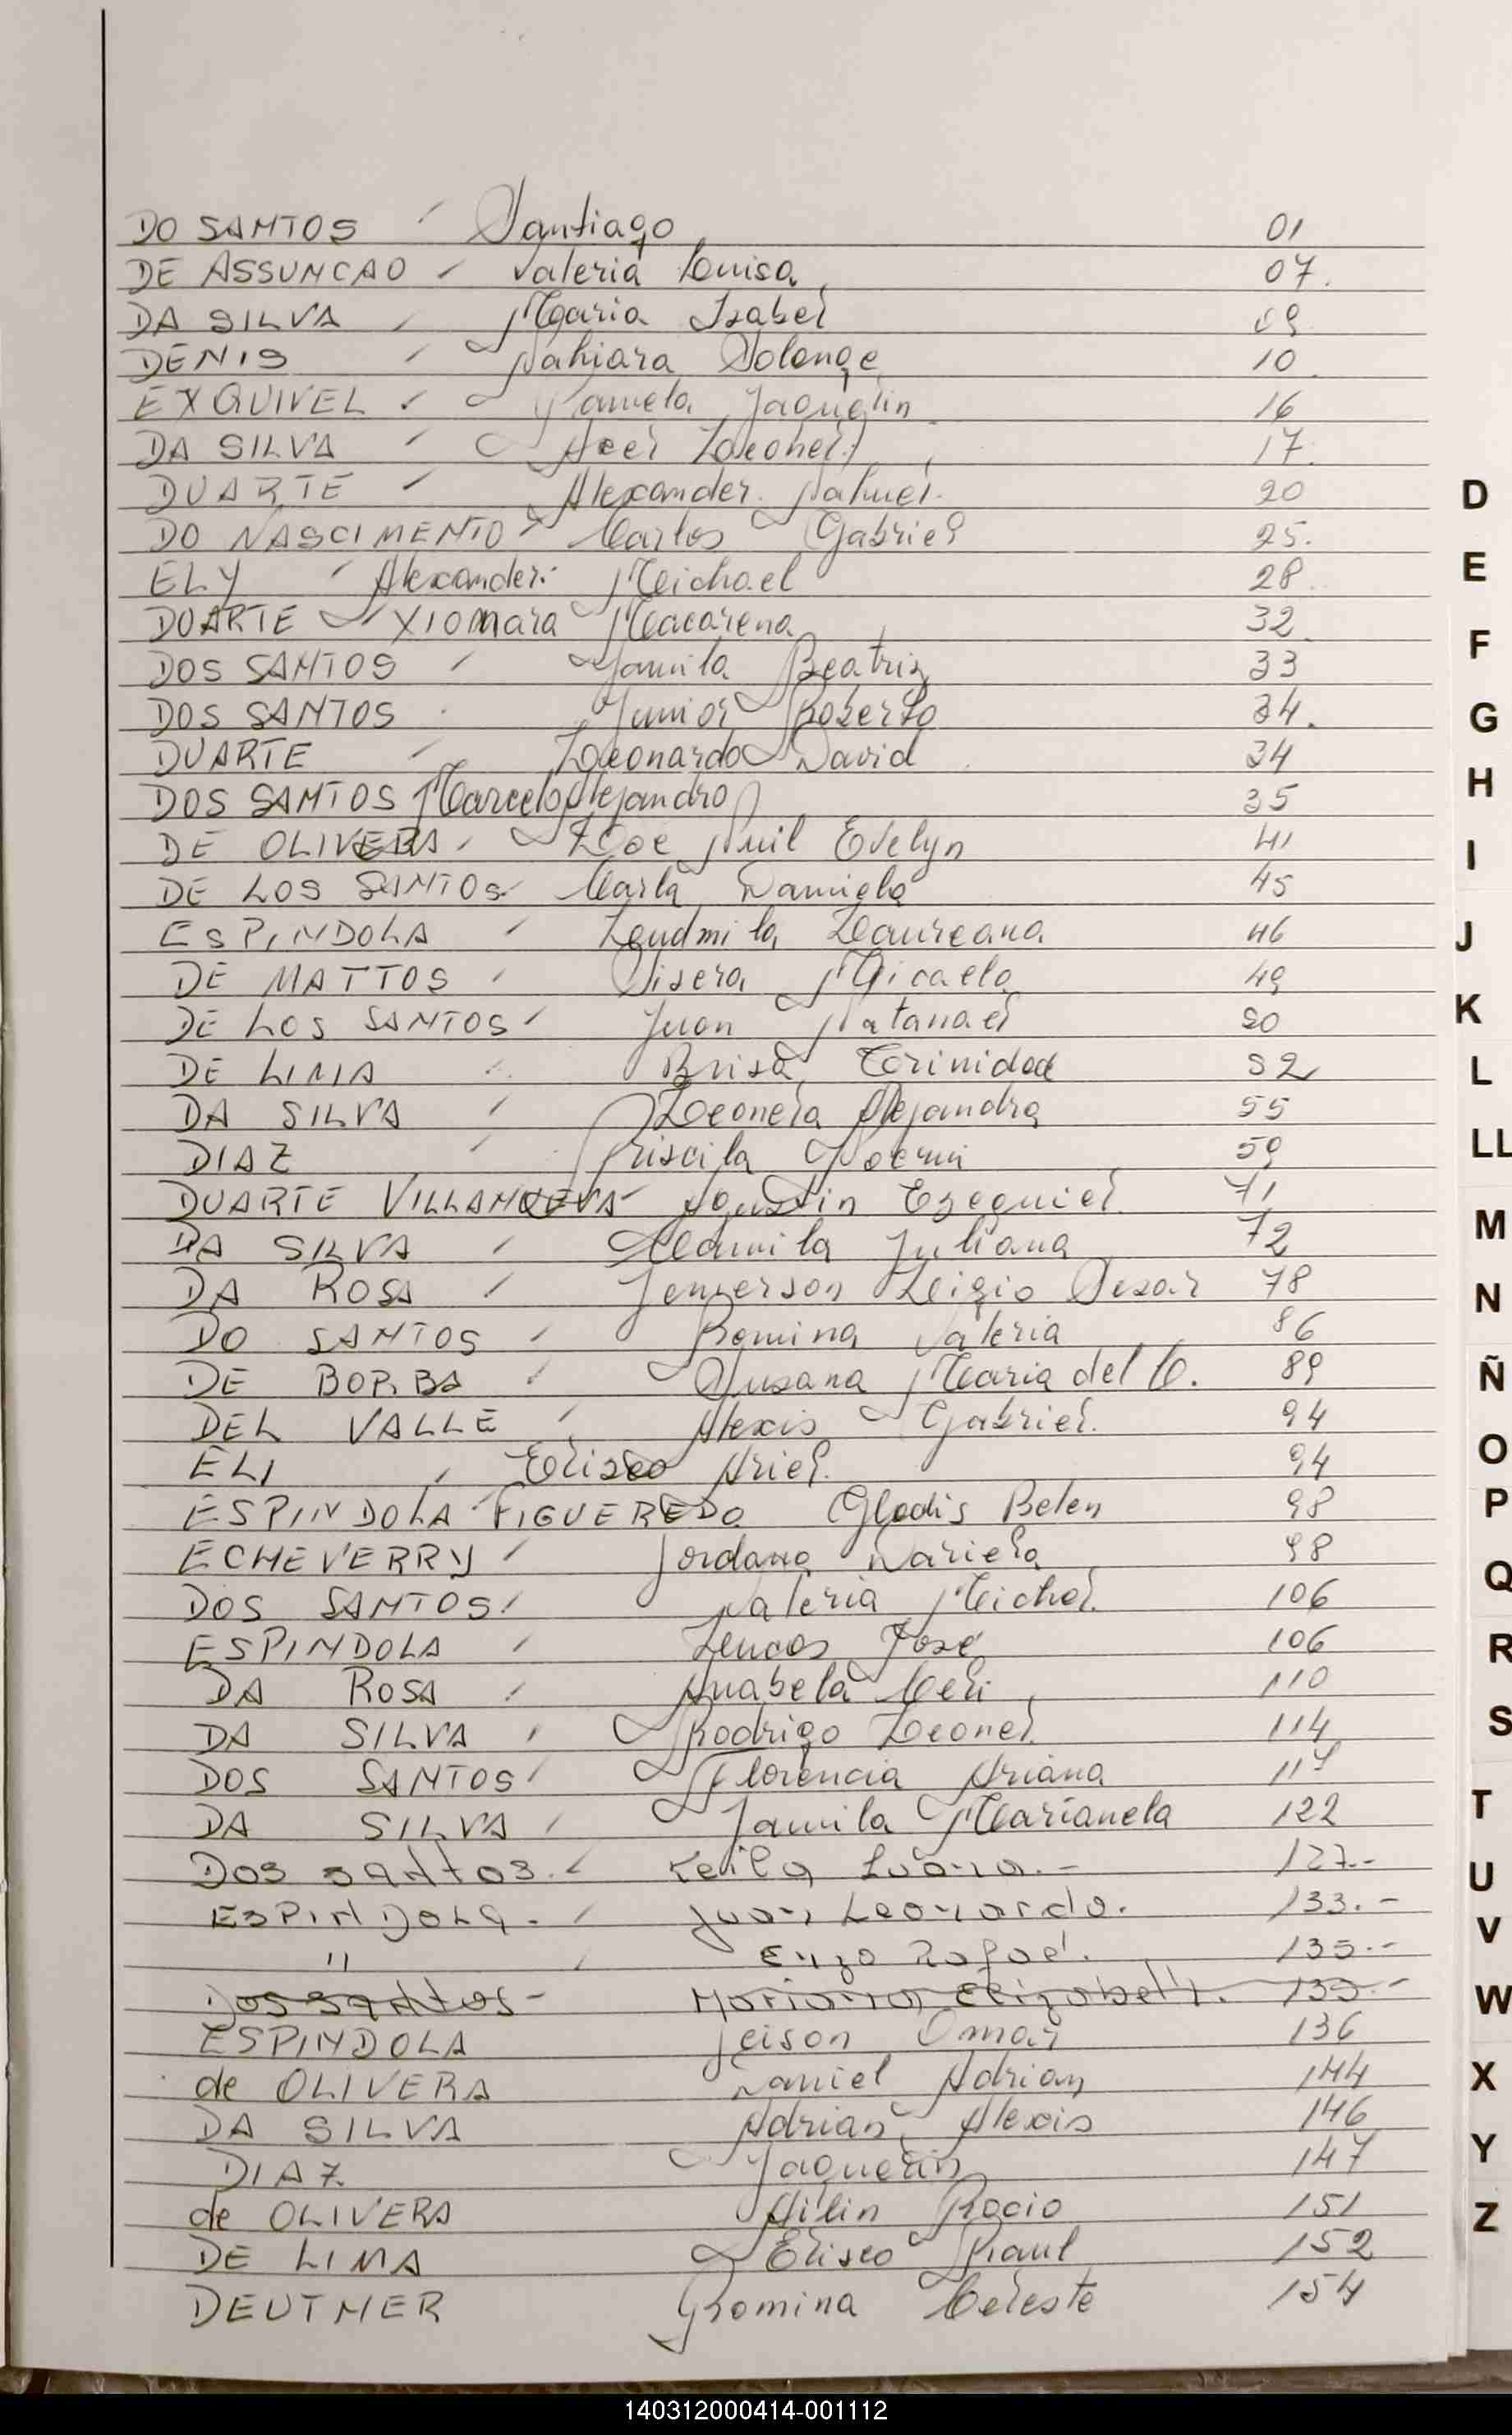 DO SANTOS Santiago 01
DE ASSUNCAO Valeria Luisa 07.
DA SILVA Maria Isabel 09
DENIS Nahiara Solange 10
EXQUIVEL Pamela Jaquelin 16
DA SILVA Leonel 17.
DUARTE Alexander Nahuel. 20
DO NASCIMENTO Carlos Gabriel 25.
ELY Alexander Michael 28
DUARTE XIOMara Macarena 32
DOS SANTOS Yamila Beatriz 33
DOS SANTOS Junior Roberto 34.
DUARTE Leonardo David 34
DOS SANTOS Marcelo Alejandro 35
DE OLIVERA Zoe Evelyn 41
DE LOS SANTOS Carla Daniela 45
ESPINDOLA Ludmila Laureana 46
DE MATTOS Micaela 49
DE LOS SANTOS Juan Natanael 50
DE LIMA Brisa Trinidad 52
DA SILVA Leonela Alejandra 55
DIAZ Priscila Noemi 59
DUARTE VILLANUEVA Agustin Ezequiel 71
DA SILVA Camila Juliana 72
DA ROSA Cesar 78
DO SANTOS Romina Valeria 86
DE BORBA Susana Maria del C. 89
DEL VALLE Alexis Gabriel. 94
ELI Eliseo Ariel. 94
ESPINDOLA FIGUEREDO Gladis Belen 98
ECHEVERRY Jordana Dariela 98
DOS SANTOS Valeria Michel. 106
ESPINDOLA Lucas José 106
DA ROSA Anabela 110
DA SILVA Rodrigo Leonel. 114
DOS SANTOS Florencia Ariana
DA SILVA Jamila Marianela 122
Dos santos.- Keila Luana.- 127.-
ESPINDOLA.- Juan Leonardo. 133.-
" Enzo Rafael. 135.-
Dos santos- Mariana Elizabeth. 135.-
ESPINDOLA Jeison Omar 136
de OLIVERA Daniel Adrian 144
DA SILVA Adrian Alexis 146
DIAZ Jaquelin 147
de OLIVERA Ailin Rocio 151
DE LIMA Eliseo Raul 152
DEUTNER Romina Celeste 154
D
E
F
G
H
I
J
K
L
LL
M
N
Ñ
O
P
Q
R
S
T
U
V
W
X
Y
Z
140312000414-001112